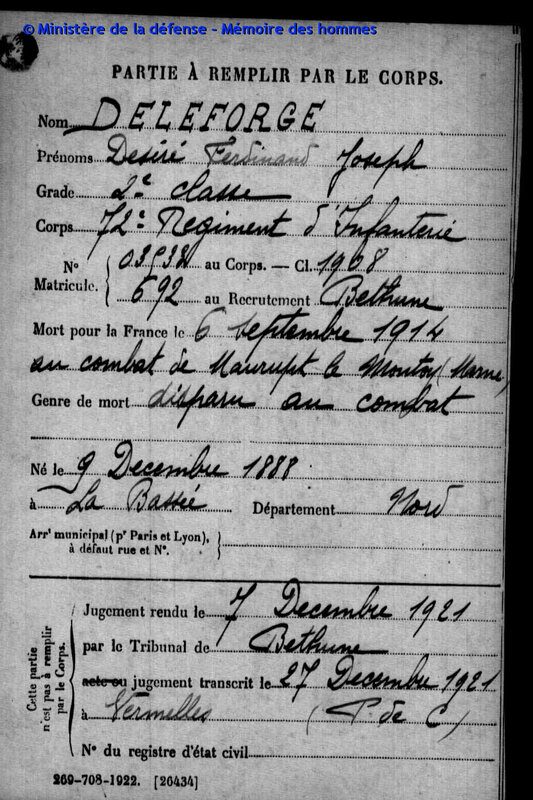 © Ministère de la défense - Mémoire des hommes
PARTIE À REMPLIR PAR LE CORPS.
Nom DELEFORGE
Prénoms Desiré Ferdinand Joseph
Grade 2e classe
Corps 72e Regiment d'Infanterie
N° Matricule. { 03938 au Corps. — Cl. 1908
692 au Recrutement Bethune
Mort pour la France le 6 septembre 1914
au combat de Maurupt le Montoy (Marne)
Genre de mort disparu au combat
Né le 9 Decembre 1888
à La Bassée Département Nord
Arrt municipal (pr Paris et Lyon),
à défaut rue et N°.
Cette partie n'est pas à remplir par le Corps.
Jugement rendu le 7 Decembre 1921
par le Tribunal de Bethune
acte ou jugement transcrit le 27 Decembre 1921
à Vermelles (P de C)
N° du registre d'état civil
269-708-1922. [26434]